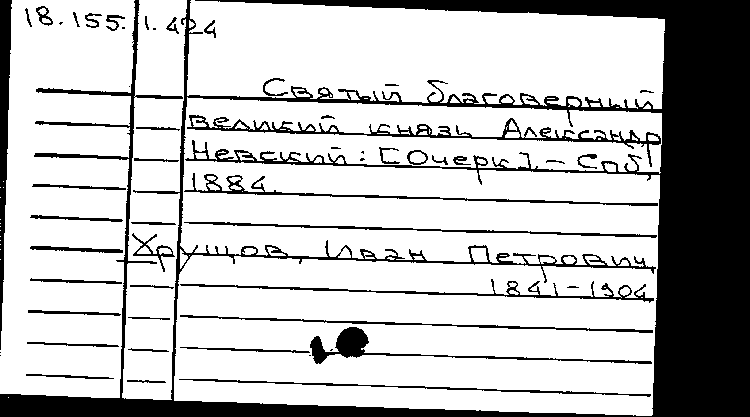 18.155.1.424
Святый благоверный
великий князь Александр
Невский: [Очерк]. - Спб,
1884.
Хрущов, Иван Петрович,
1841-1904